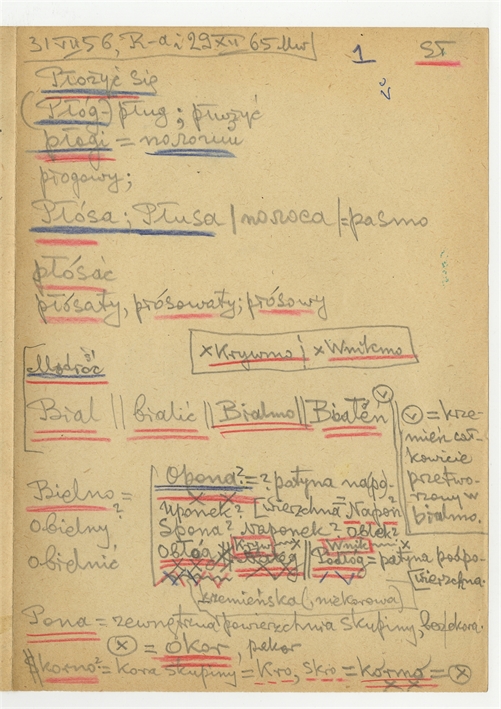 31 VIII 56, R-a i 29 XII 65 Mw
1 ST
Płożyć się
(Płóg-) pług; płużyć
płogi =
płogowy;
Płósa; Płusa | | = pasmo
płósać
płósaty, płósowaty; płósowy
× Krywno | × Wnikmo
Mądrość
Biał || bialić || Bialmo || Białeń
(v) = krze-
mień cał-
kowicie
przetwo-
rzony w
bialmo.
Bielno =
obielny?
obielnić
Opona? = ? patyna napo-
uponek? [wierzchnia = Napoń?
Spona? Naponek? Oblek?
Obłóg × Krywno
Wnik × Podłóg = patyna podpo-
[wierzchna.
krzemieńska (, niekorowa)
Pona = zewnętrzna powierzchnia Skupiny, bezekora.
(×) = Okor, pekor
Skorno? = Kora Skupiny = Kro, Skro = kormo = (×)